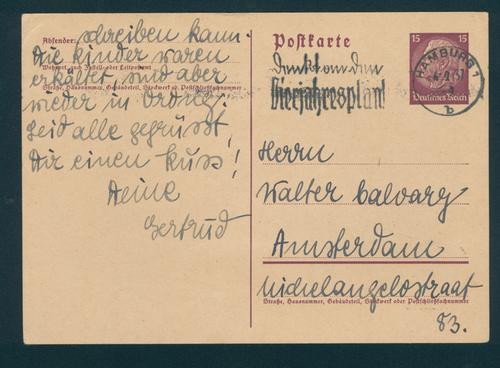 Absender:
schreiben kann.
Die Kinder waren
Wohnort, auch Zustell- oder Leitpostamt
erkältet, sind aber
Straße, Hausnummer, Gebäudeteil, Stockwerk od. Postschließfachnummer
wieder in Ordng.
Seid alle gegrüsst,
Dir einen Kuss!
Deine
Gertrud
Postkarte
Denkt an den
Vierjahresplan!
15 15
Deutsches Reich
HAMBURG 1
b
Herrn
Walter Calvary
Amsterdam
Michelangelostraat
Straße, Hausnummer, Gebäudeteil, Stockwerk oder Postschließfachnummer
83.